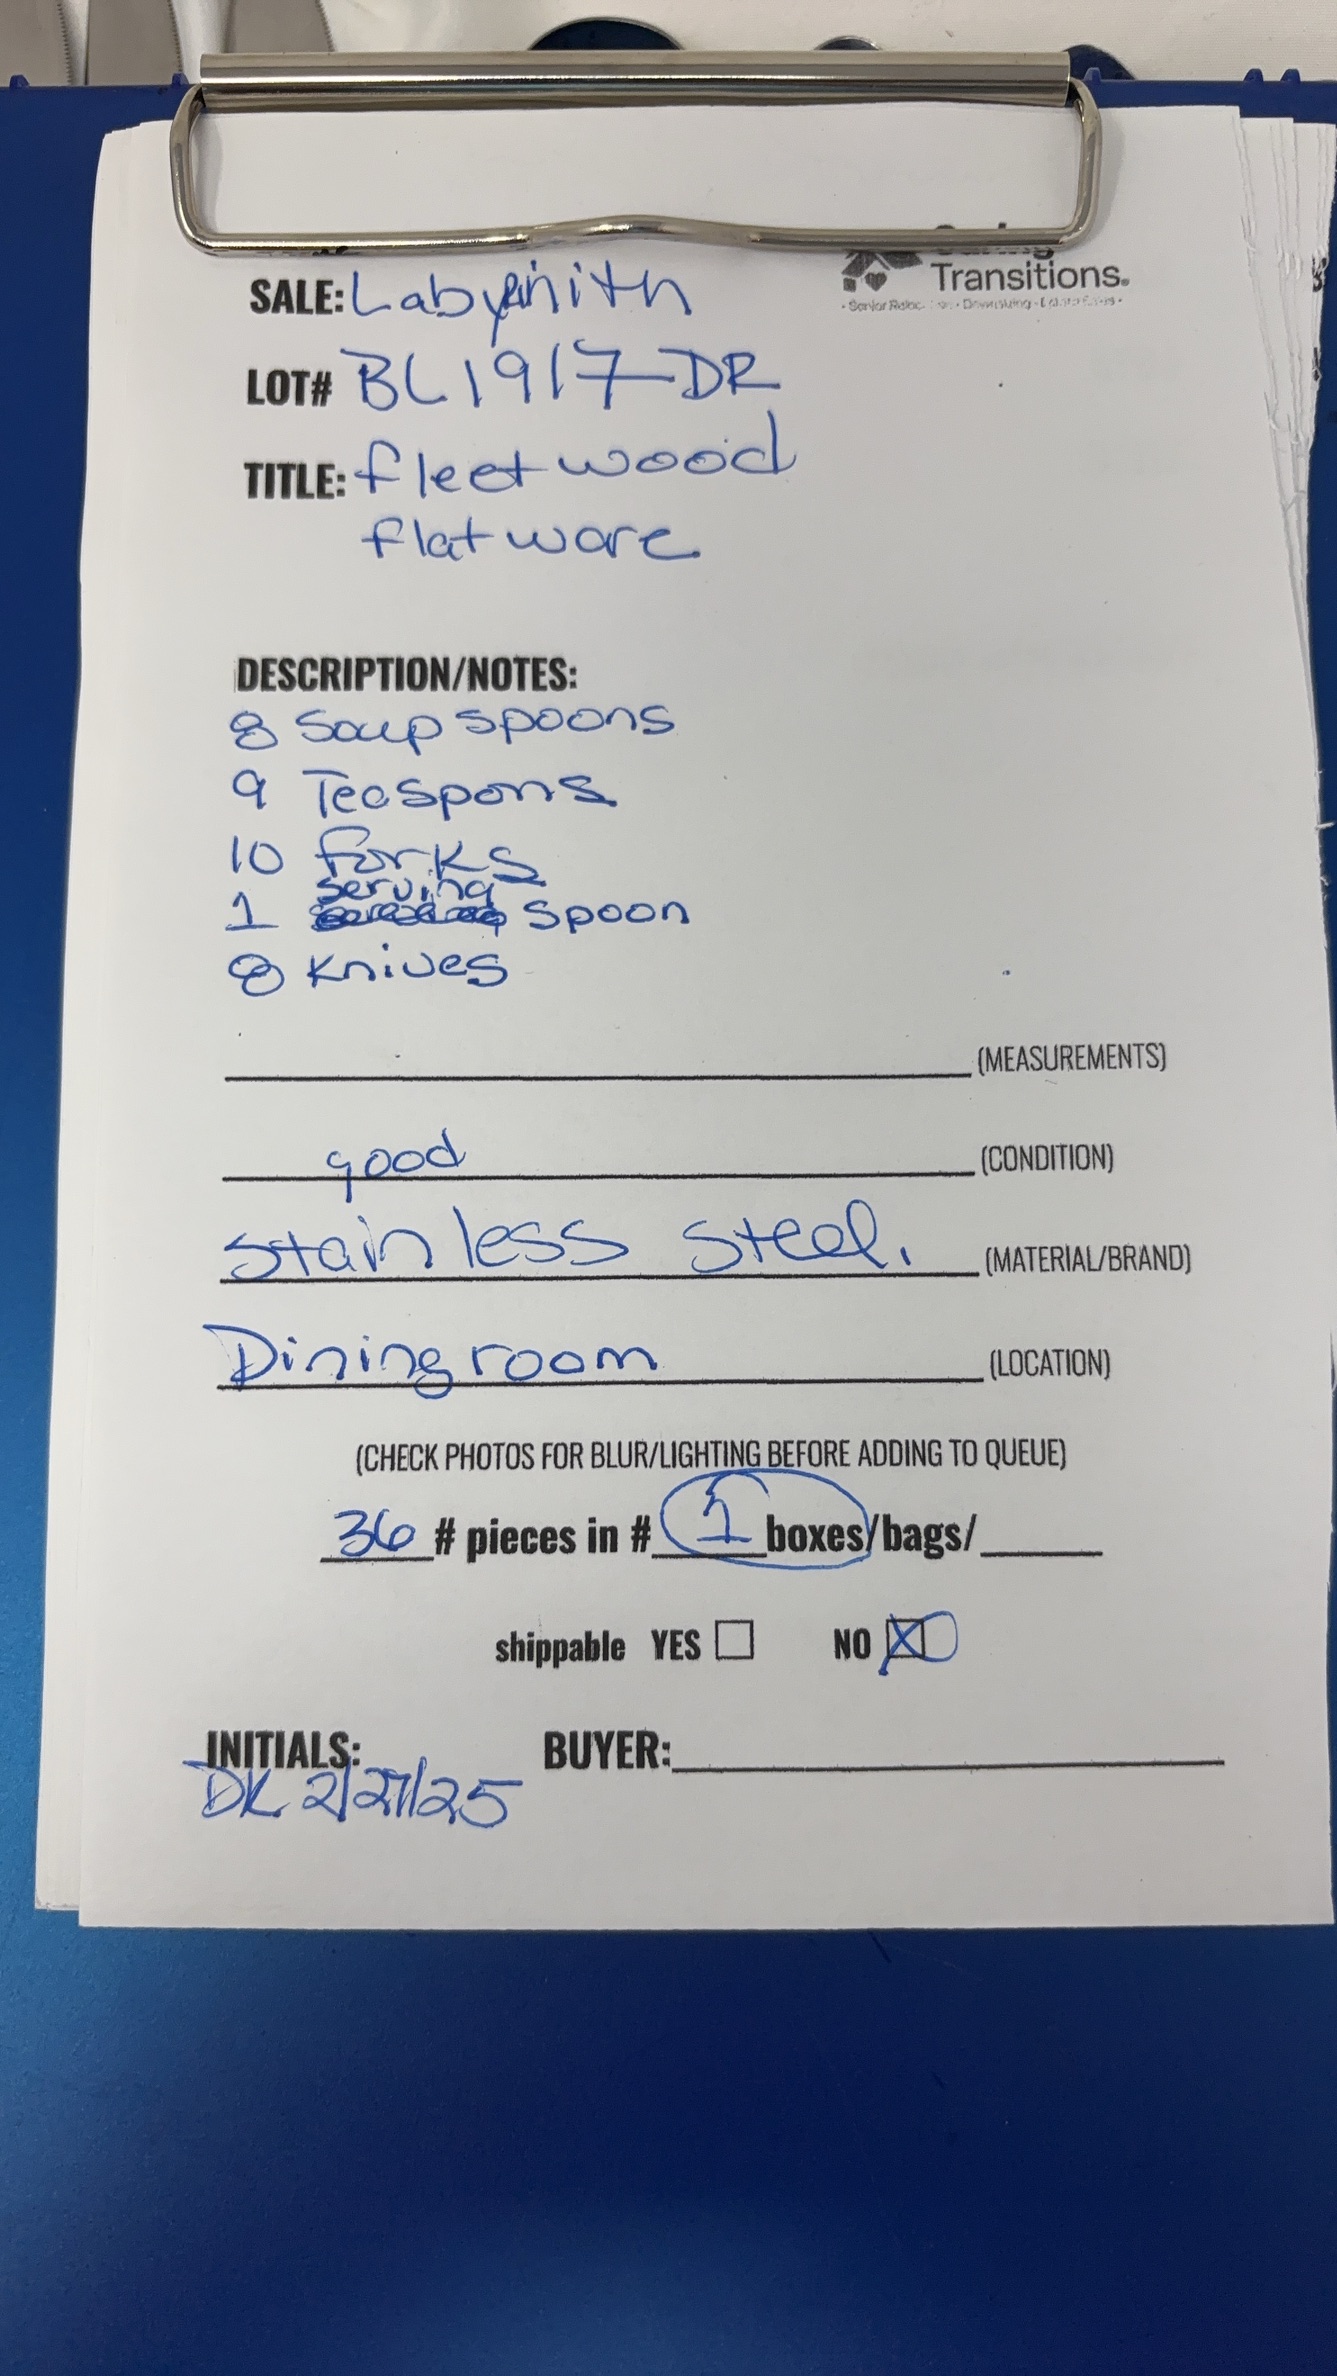 Transitions.
SALE: Labyrinith
LOT# BL1917-DR
TITLE: fleetwood
flatware
DESCRIPTION/NOTES:
8 Soup spoons
9 Teaspons
10 forks
1 serving spoon
8 knives
(MEASUREMENTS)
good (CONDITION)
stainless steel. (MATERIAL/BRAND)
Diningroom (LOCATION)
(CHECK PHOTOS FOR BLUR/LIGHTING BEFORE ADDING TO QUEUE)
36 # pieces in # 1 boxes/bags/
shippable YES NO
INITIALS: BUYER:
DK 2/27/25